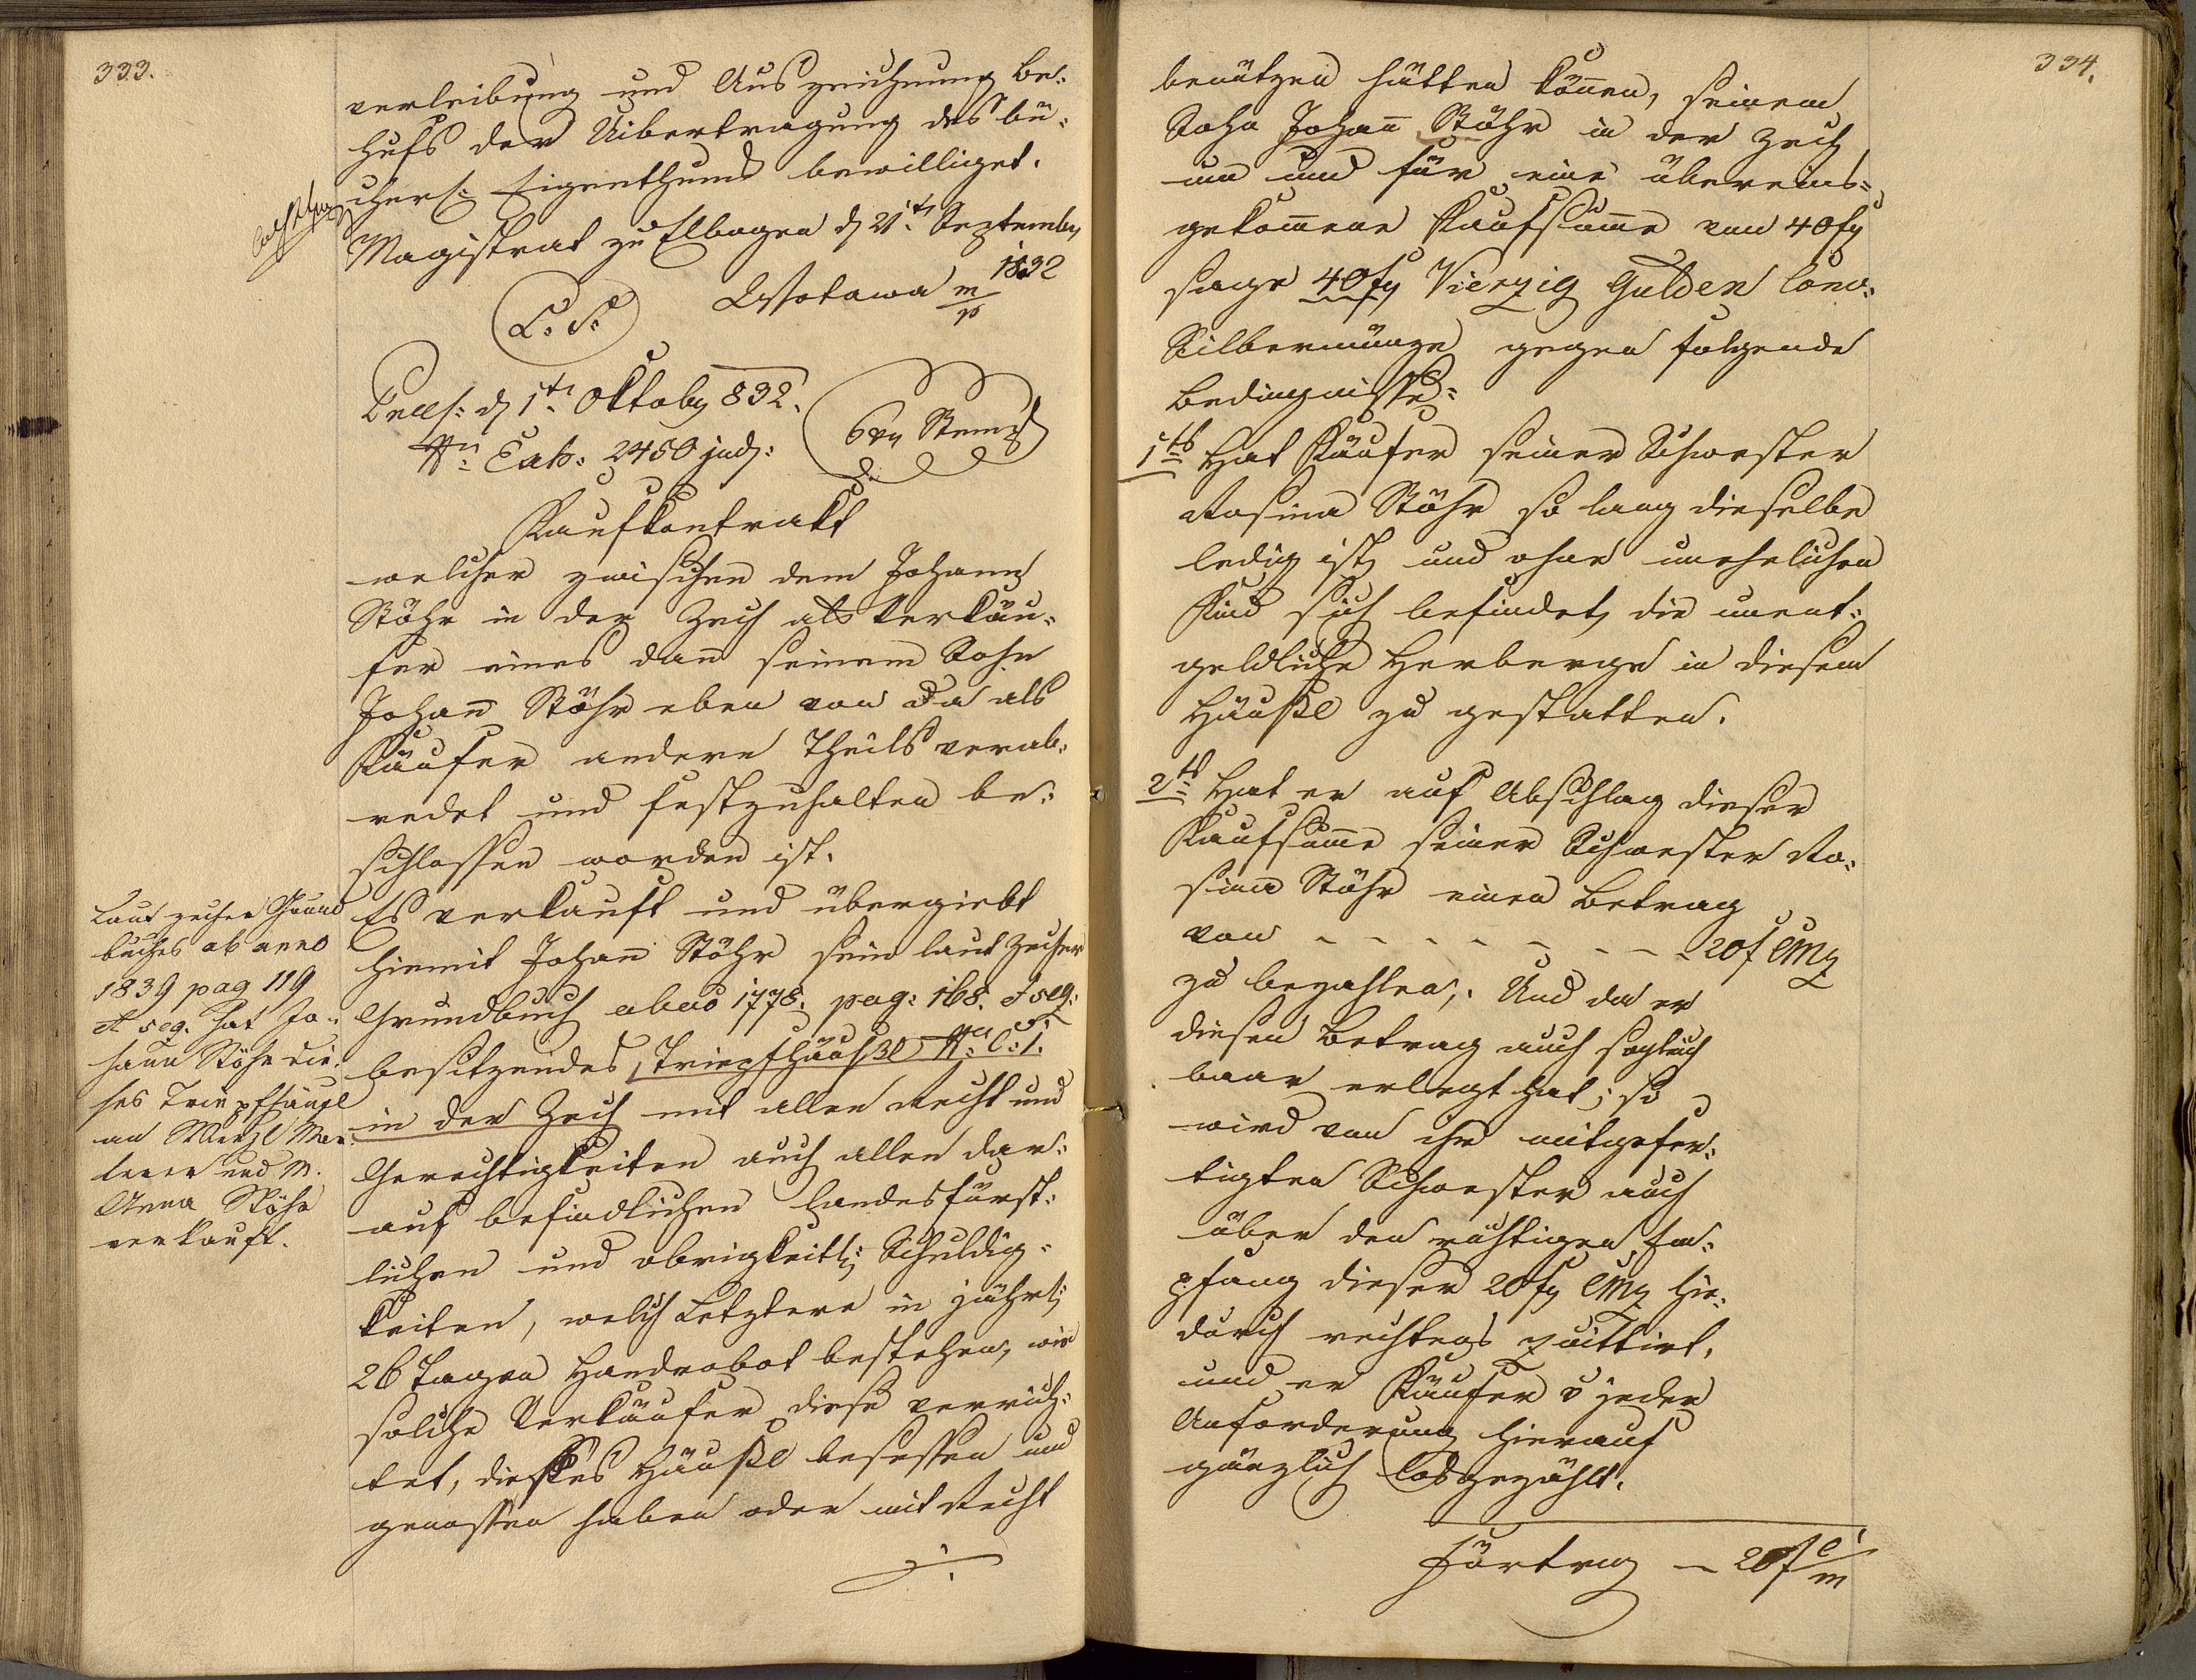 333.
verleibung und Auszeichnung be-
hufs der Uibertragung des bü-
cherl: Eigenthums bewilliget.
Magistrat zu Elbogen d 21t. Septemb
1832
L. S. Wottawa m/p
Präs: d 1tn Oktob 832.
Nr: Exb: 2450 jud:
6 xr Stempl
Kaufkontrakt
welcher zwischen dem Johann
Stöhr in der Zech als Verkäu-
fer eines dann seinem Sohn
Johann Stöhr eben von da als
Käufer andern Theils verab-
redet und festzuhalten be-
schlossen worden ist.
Es verkauft und übergiebt
hiemit Johann Stöhr sein laut Zecher
Grundbuch abao 1778. pag: 168. et seq:
besitzendes Tripfhäußl Nr. C: 1.
in der Zech mit allen Recht und
Gerechtigkeiten auch allen dar-
auf befindlichen landesfürst-
lichen und obrigkeitl: Schuldig-
keiten, welch Letztere in jährl:
26 Tagen Handrobot bestehen, wie
solche Verkäufer diese verrich-
tet, dieses Häußl besessen und
genossen haben oder mit Recht
./.
Laut zecher Grund
buches ab anno
1839 pag 119
et seq. hat Jo-
hann Stöhr die-
ses Tripfhäusl
an Wenzl
und M.
Anna Stöhr
verkauft.
334.
benützen hätten können, seinem
Sohn Johann Stöhr in der Zech
um und für eine übereins-
gekommene Kaufsumme von 40 fr
sage 40 fr Vierzig Gulden Conv:
Silbermünze gegen folgende
Bedingnisse:
1tes Hat Käufer seiner Schwester
Rosina Stöhr so lang dieselbe
ledig ist und ohne unehelichen
Kind sich befindet, die unent-
geldliche Herberge in diesem
Häußl zu gestatten.
2ts Hat er auf Abschlag dieser
Kaufsumme seiner Schwester Ro-
sina Stöhr einen Betrag
von - - - - - - - - 20 f CMz
zu bezahlen,. Und da er
diesen Betrag auch sogleich
baar erlegt hat; so
wird von ihr mitgefer-
tigten Schwester auch
über den richtigen Em-
pfang dieser 20 fr CMz hie-
durch rechtens quittirt,
und er Käufer v jeder
Anforderung hierauf
gänzlich losgezählt.
Fürtrag - 20 f C/m